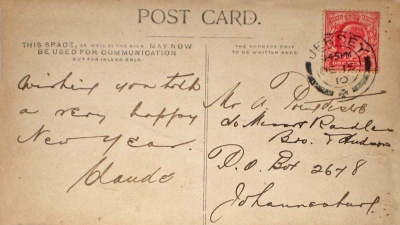 POST CARD.
THIS SPACE, AS WELL AS THE BACK, MAY NOW
BE USED FOR COMMUNICATION
FOR INLAND ONLY.
THE ADDRESS ONLY
TO BE WRITTEN HERE.
JERSEY
10
Wishing you both
a very happy
New Year.
Claude
Mr A.
c/o Messrs Randles
Bro. & Hudson
P.O. Box 2678
Johannesburg.